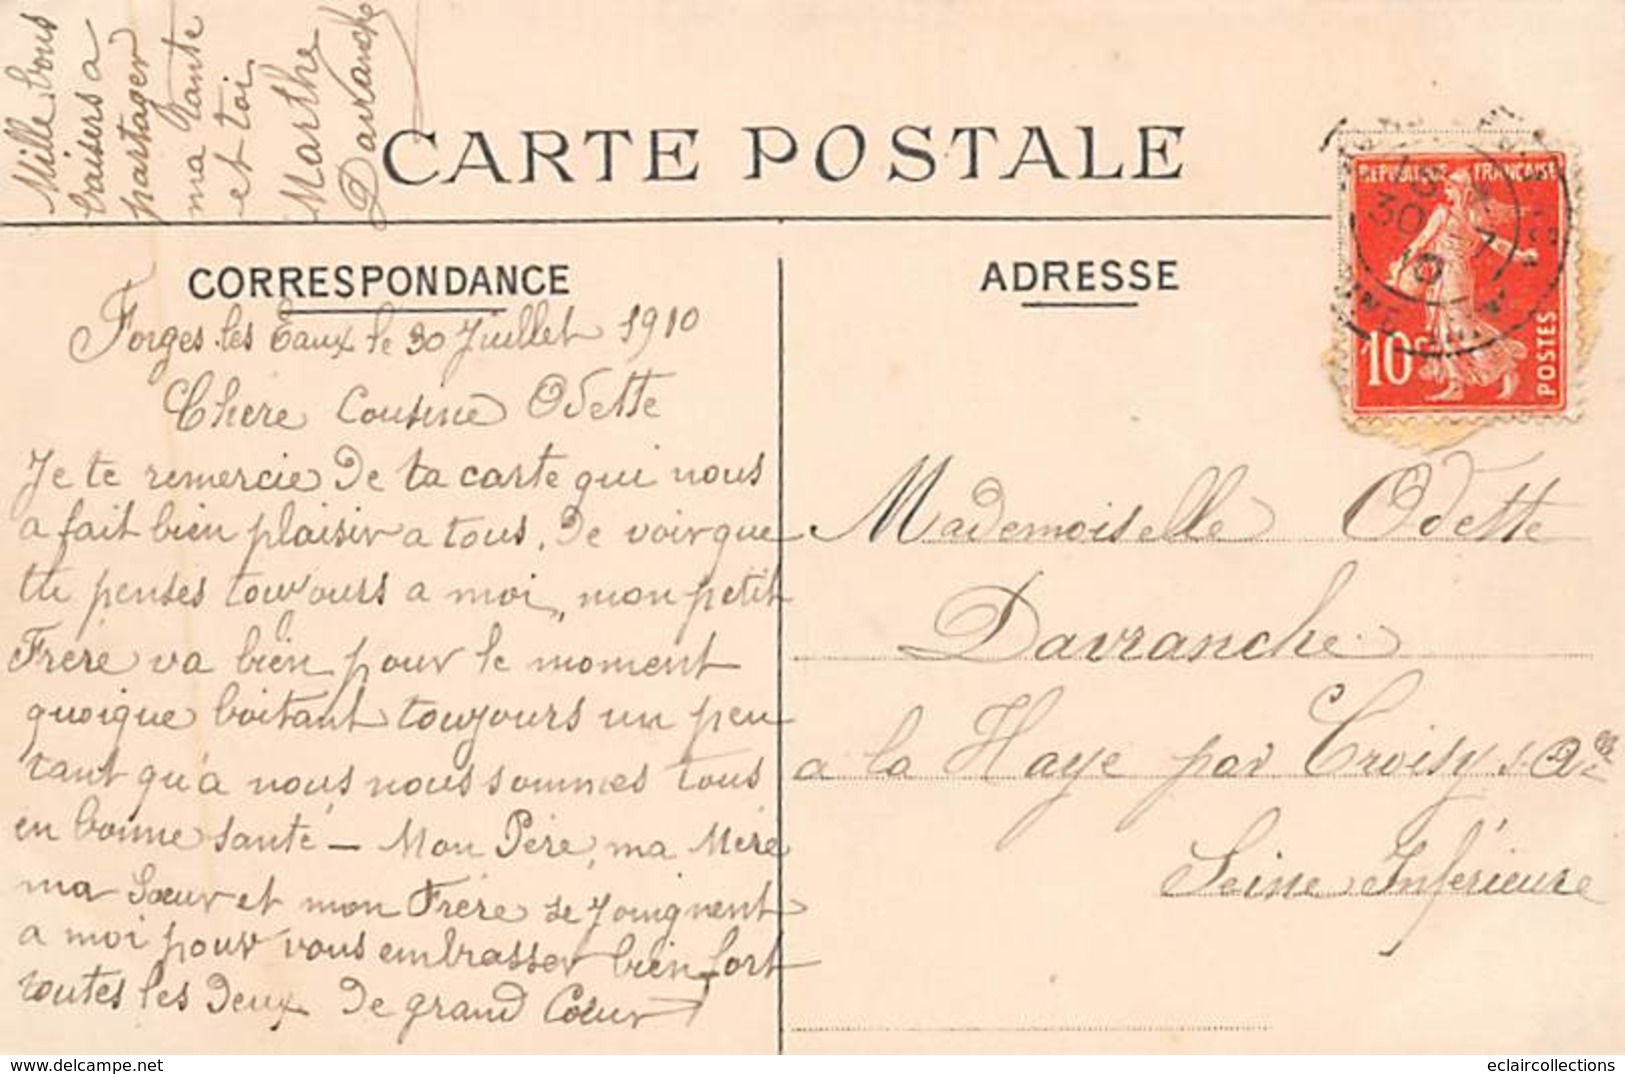 Mille bons
baisers a
partager
ma Tante
et toi
Marthe
Davranche
CARTE POSTALE
CORRESPONDANCE
Forges les Eaux le 30 Juillet 1910
Chère Cousine Odette
Je te remercie de ta carte qui nous
a fait bien plaisir a tous, de voir que
tu penses toujours a moi, mon petit
Frère va bien pour le moment
quoique boitant toujours un peu
tant qu'a nous nous sommes tous
en bonne santé — Mon Père, ma Mère
ma Sœur et mon Frère se joignent
a moi pour vous embrasser bien fort
toutes les deux de grand Cœur
ADRESSE
REPUBLIQUE FRANÇAISE
10c
POSTES
30 -7
10
Mademoiselle Odette
Davranche
a la Haye par Croisy s. Alle
Seine Inférieure
eclaircollections